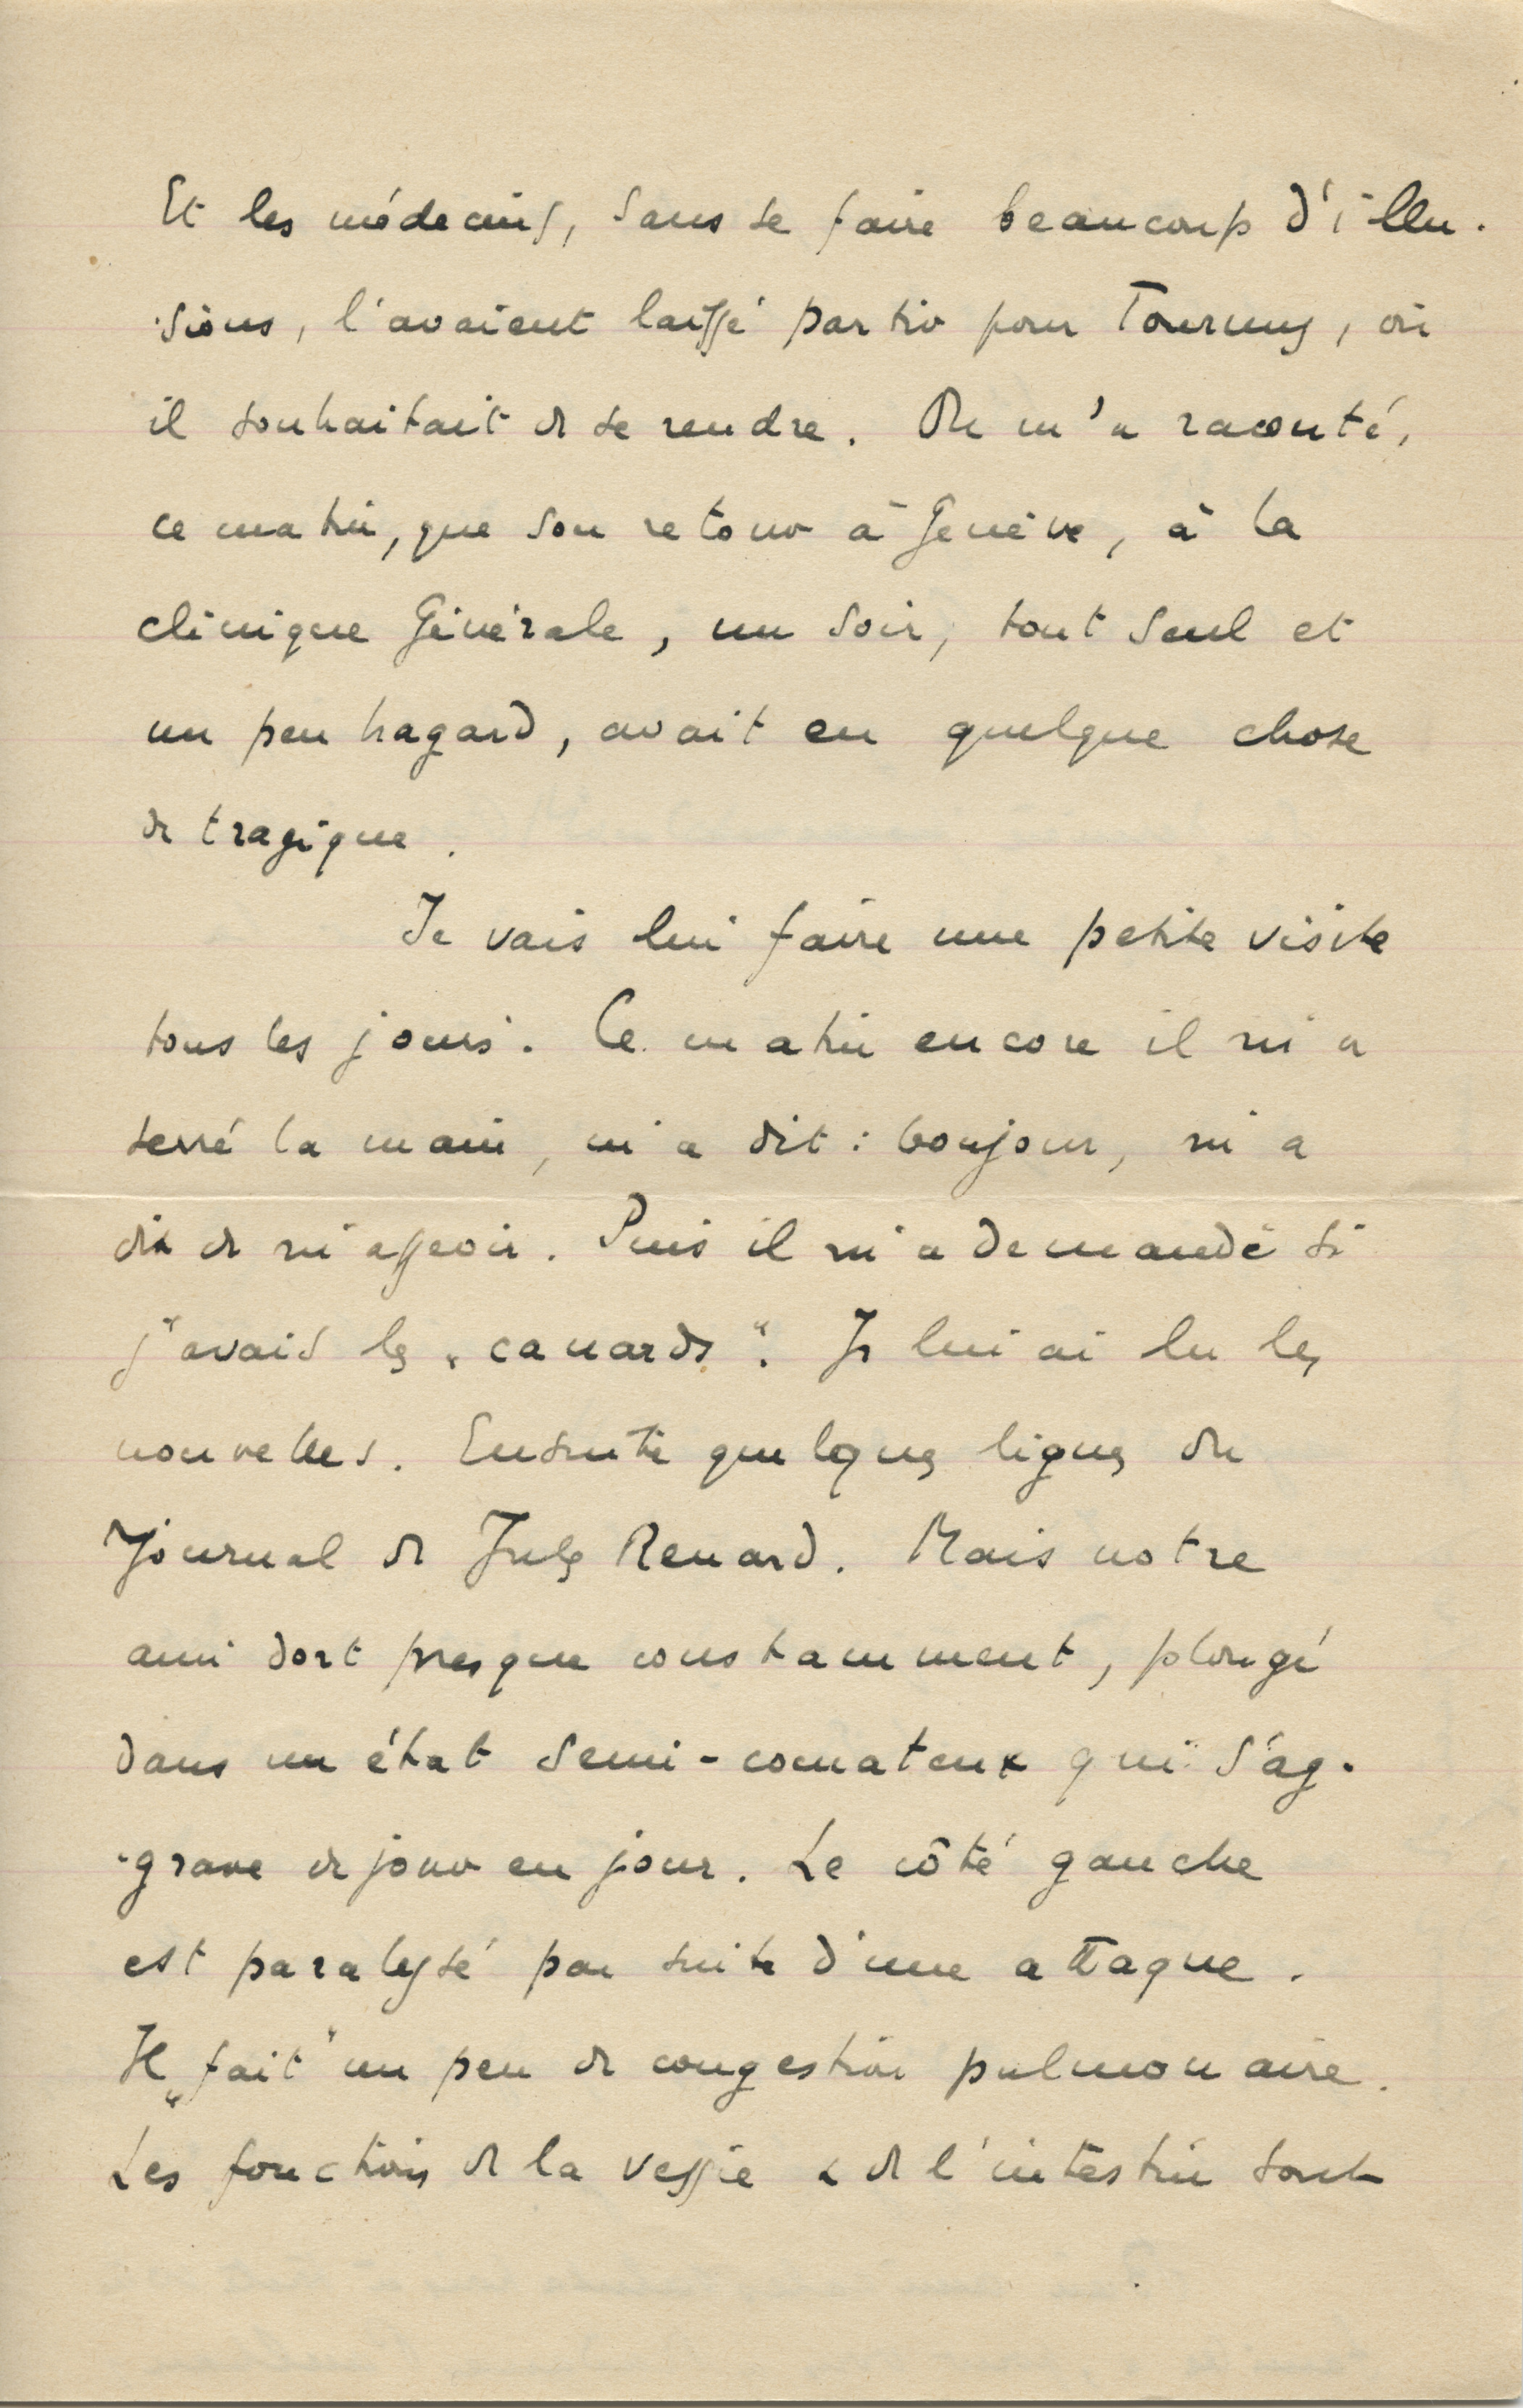 Et les médecins, sans se faire beaucoup d'illu-
-sions, l'avaient laissé partir pour Tournus, où
il souhaitait de se rendre. On m'a raconté,
ce matin, que son retour à Genève, à la
clinique Générale, un soir, tout seul et
un peu hagard, avait eu quelque chose
de tragique.
Je vais lui faire une petite visite
tous les jours. Ce matin encore il m'a
serré la main, m'a dit : bonjour, m'a
dit de m'asseoir. Puis il m'a demandé si
j'avais les „canards“. Je lui ai lu les
nouvelles. Ensuite quelques lignes du
Journal de Jules Renard. Mais notre
ami dort presque constamment, plongé
dans un état semi-comateux qui s'ag-
-grave de jour en jour. Le côté gauche
est paralysé par suite d'une attaque.
Il „fait“ un peu de congestion pulmonaire.
Les fonctions de la vessie & de l'intestin sont